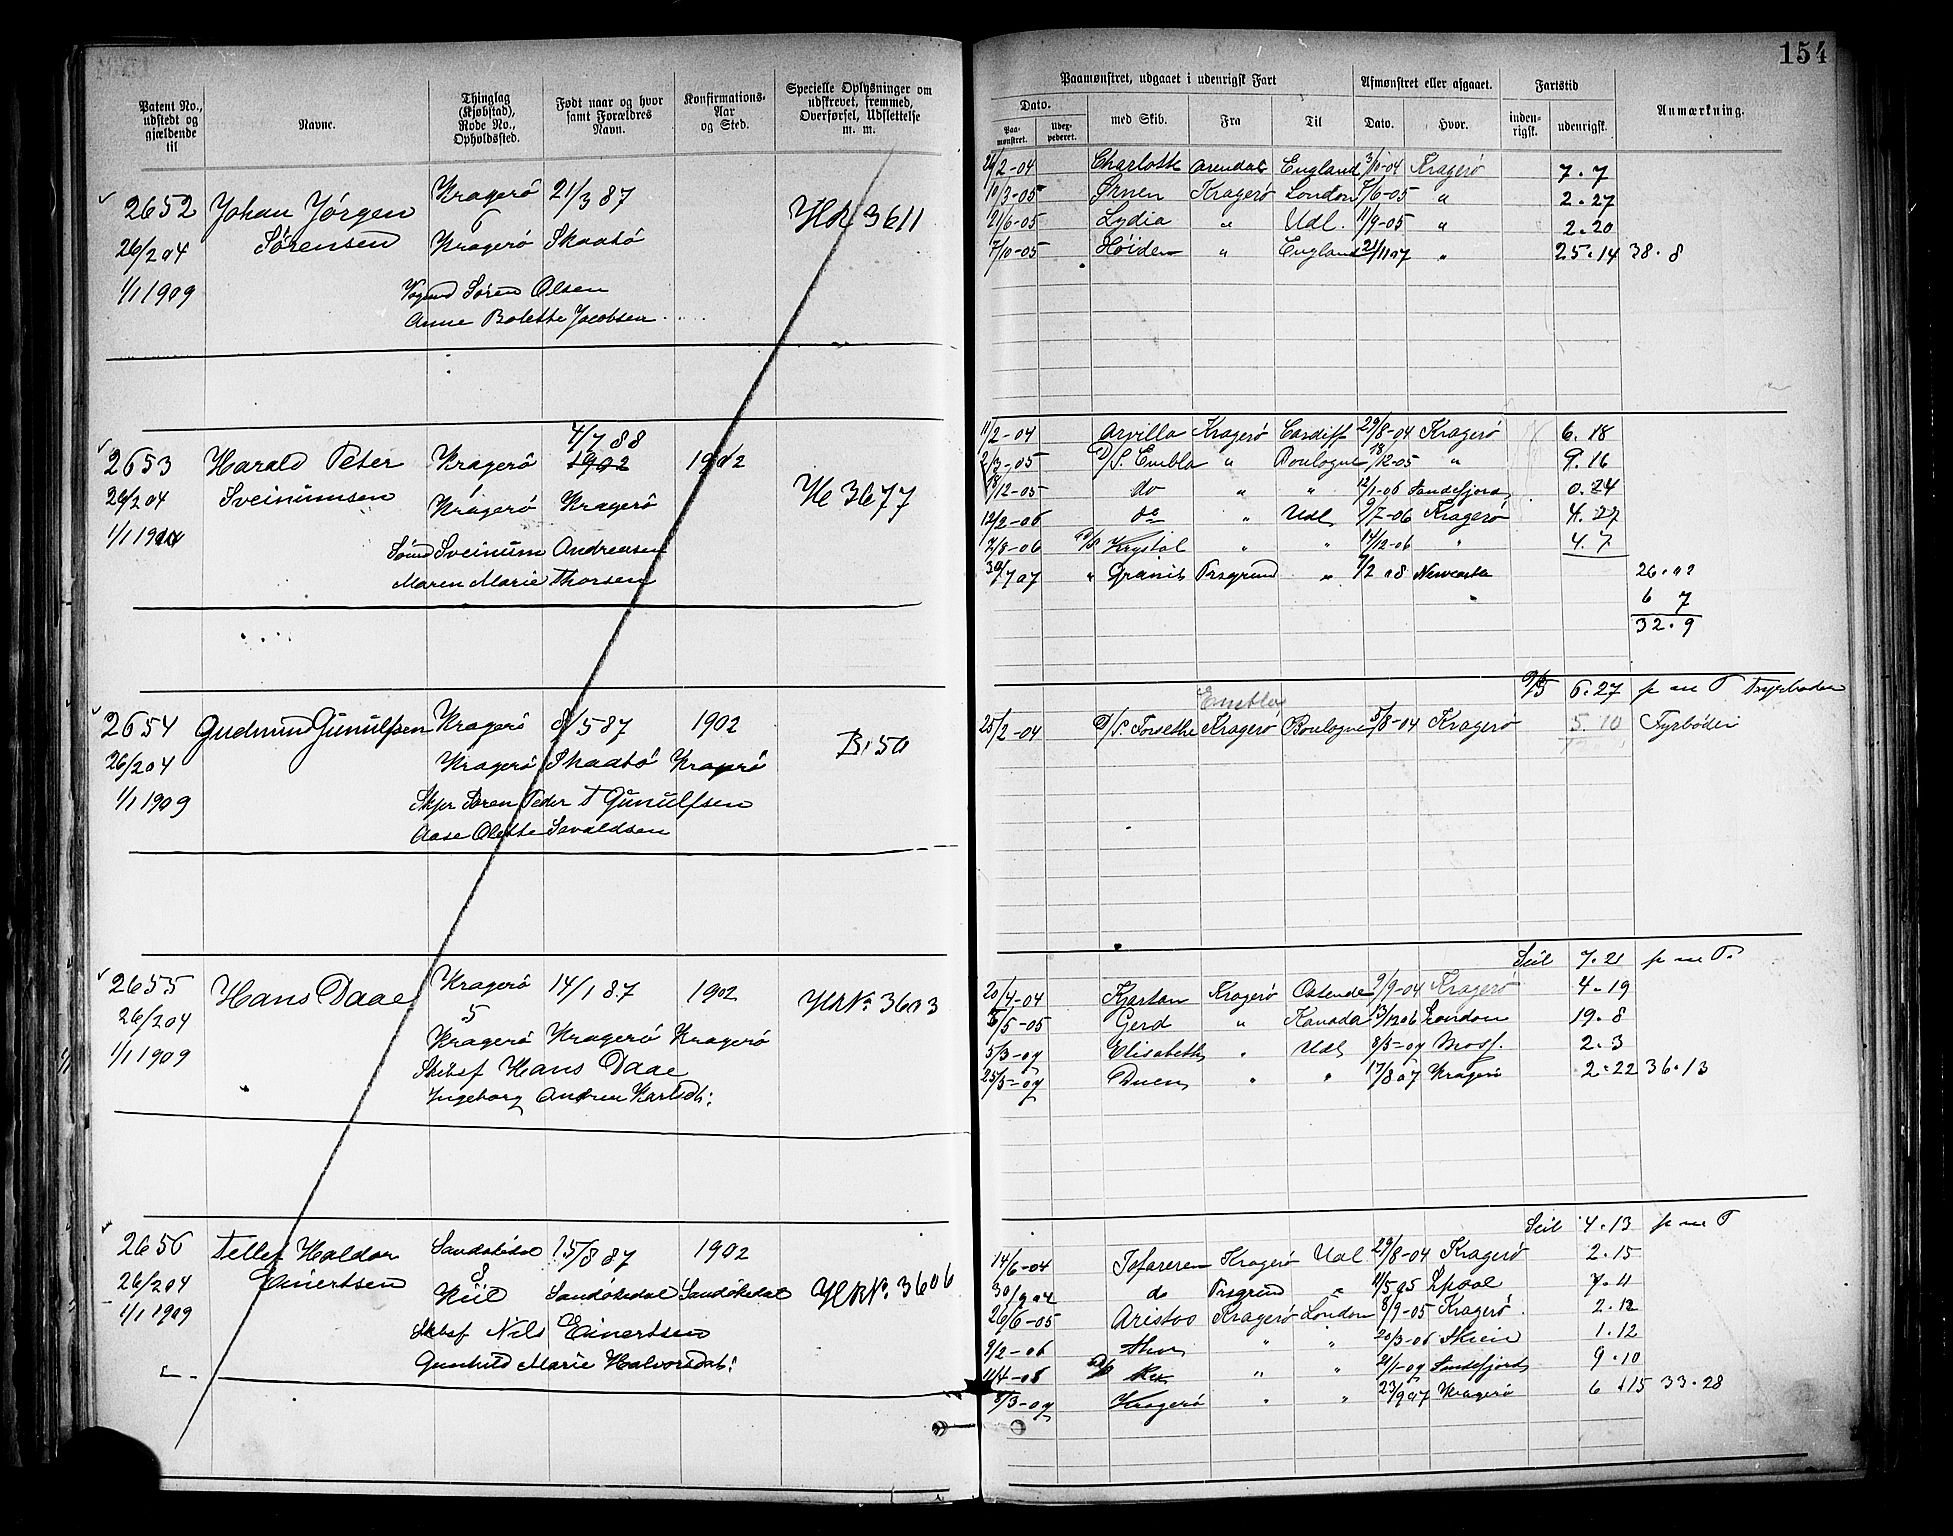 154
Patent No., udstedt og gjældende til
Navne.
Thinglag (Kjøbstad), Rode No., Opholdssted.
Født naar og hvor samt Forældres Navn.
Konfirmations-Aar og Sted.
Specielle Oplysninger om udskrevet, fremmed, Overførsel, Udslettelse m. m.
Paamønstret, udgaaet i udenrigsk Fart
Afmønstret eller afgaaet.
Fartstid
Anmærkning.
Dato.
Paa-mønstret.
med Skib.
Fra
Til
Dato.
Hvor.
inden-rigsk.
udenrigsk.
2652 Johan Jörgen Kragerö 21/3 87
26/2 04 Sörensen 6 Kragerö Skaatö
1/1 1909 Sören Olsen
Anne Bolette Jacobsen
3611
26/2-04 Charlotte Arendal England 3/10-04 Kragerö 7.7
10/3-05 Ørnen Kragerö London 7/6-05 " 2.27
21/6-05 Lydia " Udl. 11/9-05 " 2.20
7/10-05 " England 21/11 07 " 25.14 38.8
2653 Harald Peter Kragerö 4/7 88 1902 1902
26/2 04 Sveinumsen Kragerö Kragerö
Sveinum Andreasen
Maren Marie Thorsen
3677
11/2-04 Arvilla Kragerö Cardiff 29/8-04 Kragerö 6.18
2/3-05 D/S. Embla " Boulogne 18/12-05 " 9.16
18/12-05 do " " 12/1-06 Sandefjord 0.24
12/2-06 do " Udl 9/7-06 Kragerö 4.27
2/8-06 Krystal " " 14/12-06 " 4.7
30/7 07 " Granit Prsgrund " 7/2 08 Newcastle 26.02
6 7
32.9
2654 Gudmund Gunulfsen Kragerö 8/5 87 1902
26/2 04 Kragerö Skaatö Kragerö
1/1 1909 Skpr Sören Peder T Gunulfsen
Aase Olette Savaldsen
B. 50
6.27 p m T Fyrböder
Embla
25/2-04 D/S. Forsethe Kragerö Boulogne 5/8-04 Kragerö 5.10 Fyrböder
2655 Hans Daae Kragerö 14/1 87 1902
26/2 04 5 Kragerö Kragerö Kragerö
1/1 1909 Skibsf Hans Daae
Ingeborg Andrea Karlsdt:
No. 3603
Seil 7.21 p m T.
20/4-04 Kjartan Kragerö Ostende 9/9-04 Kragerö 4.19
5/5-05 Gerd " Kanada 13/12 06 London 19.8
5/3-07 Elisabeth " Udl 8/5-07 Moss. 2.3
25/5-07 Duen " " 17/8 07 Kragerö 2.22 36.13
2656 Tellef Haldor Sandökedal 15/8 87 1902
26/2 04 Einertsen 8 Kiil Sandökedal Sandökedal
1/1 1909 Skibsf Nils Einertsen
Gunhild Marie Halvorsdat:
No. 3606
Seil 4.13 p m T
14/6-04 Kragerö Udl 29/8-04 Kragerö 2.15
30/9 04 do Prsgrund " 11/5 05 Lpool 7.11
26/6-05 Aristos Kragerö London 8/9-05 Kragerö. 2.12
9/2-06 " " 20/3-06 Skien 1.12
11/4-06 Rex " " 21/1-07 Sandefjord 9.10
8/3-07 Kragerö " " 23/9 07 Kragerö 6.15 33.28